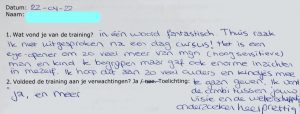 Datum: 22-04-22
Naam:
1. Wat vond je van de training? in één woord fantastisch. Thuis raak
ik niet uitgesproken na een dag cursus! Het is een
eye-opener om zo veel meer van mijn (hoog sensitieve)
man en kind te begrijpen maar gaf ook enorme inzichten
in mezelf. Ik hoop dat aan zo veel ouders en kindjes mee
te gaan geven. Ik vond
2. Voldeed de training aan je verwachting? Ja / nee. Toelichting:
de combi tussen jouw
Ja, en meer
visie en de wetensch.
onderzoeken heel prettig